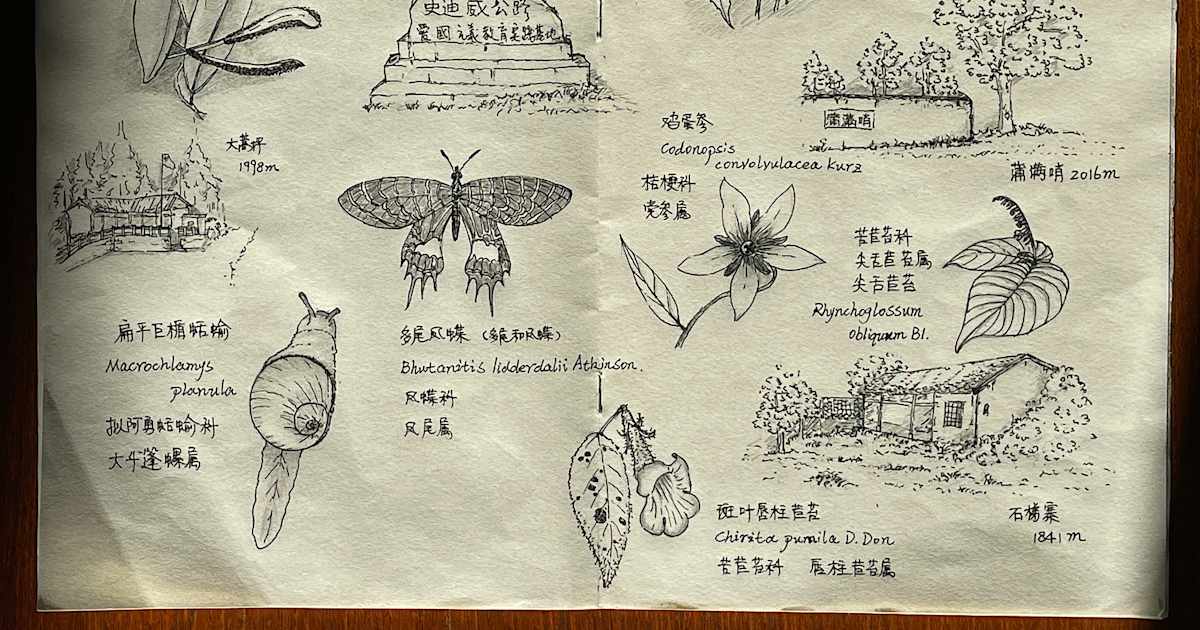 史迪威公路
爱國主義教育実踐基地
蒲满哨
大蒿坪
1998m
鸡蛋参
Codonopsis
convolvulacea Kurz
桔梗科
党参属
蒲满哨 2016m
苦苣苔科
尖舌苣苔属
尖舌苣苔
Rhynchoglossum
obliquum Bl.
扁平巨楯蛞蝓
Macrochlamys
planula
拟阿勇蛞蝓科
大斗蓬螺属
多尾凤蝶 (多尾和凤蝶)
Bhutanitis lidderdalii Atkinson.
凤蝶科
凤尾属
斑叶唇柱苣苔
Chirita pumila D. Don
苦苣苔科 唇柱苣苔属
石梯寨
1841m